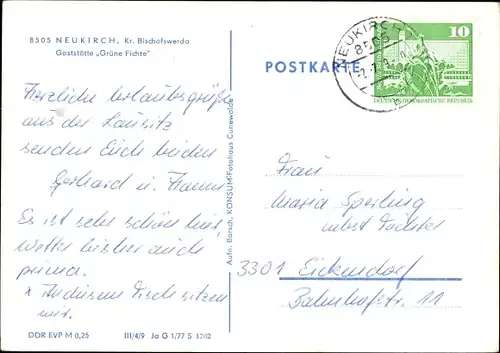 8505 NEUKIRCH, Kr. Bischofswerda
Gaststätte „Grüne Fichte"
Herzliche Urlaubsgrüße
aus der Lausitz
senden Euch beiden
Gerhard u. Hanni
Es ist sehr schön hier,
Wetter bisher auch
prima.
x An diesem Tisch sitzen
wir.
DDR EVP M 0,25
III/4/9 Ja G 1/77 S 1202
Aufn. Borsch, KONSUM-Fotohaus Cunewalde
POSTKARTE
NEUKIRCH
8505
10
DEUTSCHE DEMOKRATISCHE REPUBLIK
Frau
Maria Sperling
nebst Tochter
3301 Eickendorf
Bahnhofstr. 11